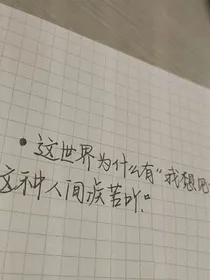 •这世界为什么有“我想吧
这种人间疾苦吖。